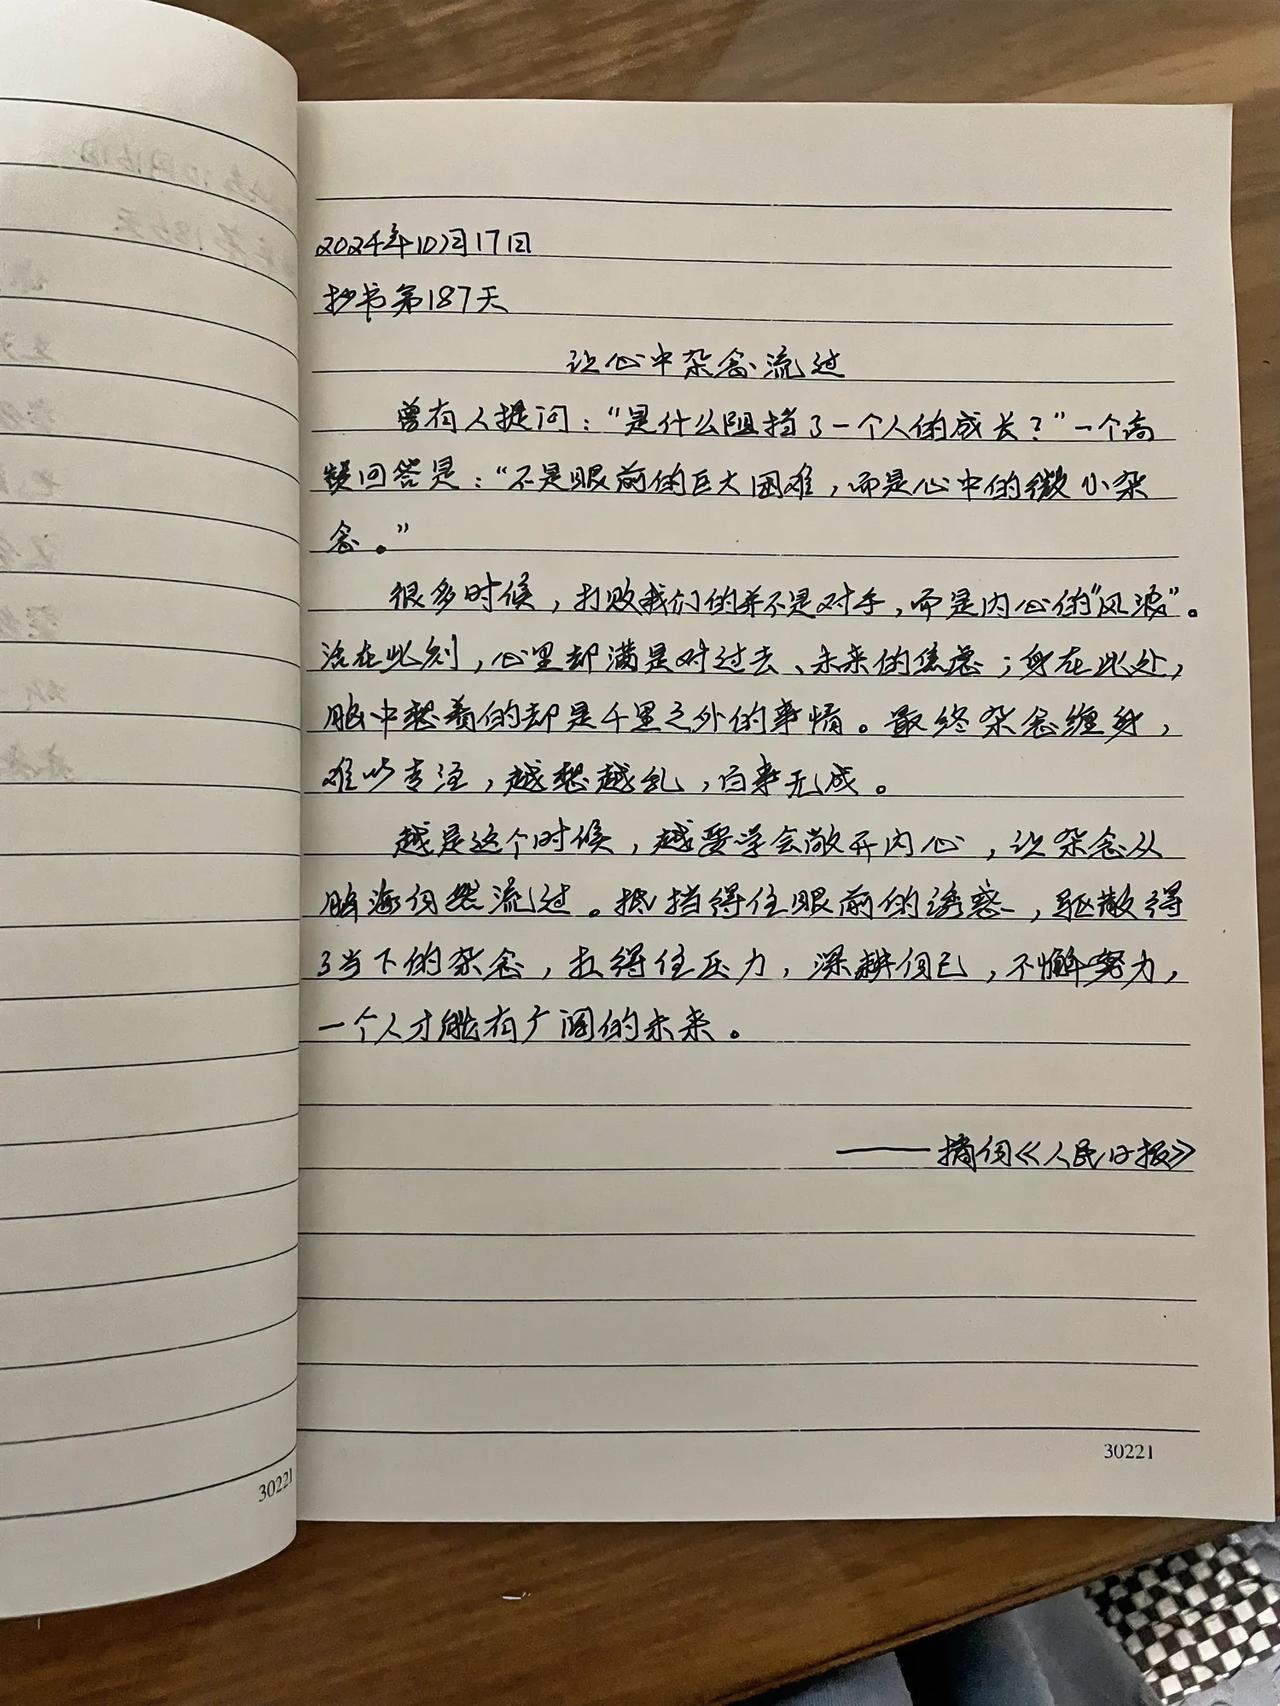 2024年10月17日
抄书第187天
让心中杂念流过
曾有人提问：“是什么阻挡了一个人的成长？”一个高
疑回答是：“不是眼前的巨大困难，而是心中的微小杂
念。”
很多时候，打败我们的并不是对手，而是内心的“风波”。
活在此刻，心里却满是对过去、未来的焦虑；身在此处，
脑中想着的却是千里之外的事情。最终杂念缠身，
难以专注，越想越乱，百事无成。
越是这个时候，越要学会敞开内心，让杂念从
脑海自然流过。抵挡得住眼前的诱惑，驱散得
了当下的杂念，扛得住压力，深耕自己，不懈努力，
一个人才能有广阔的未来。
——摘自《人民日报》
30221
30221